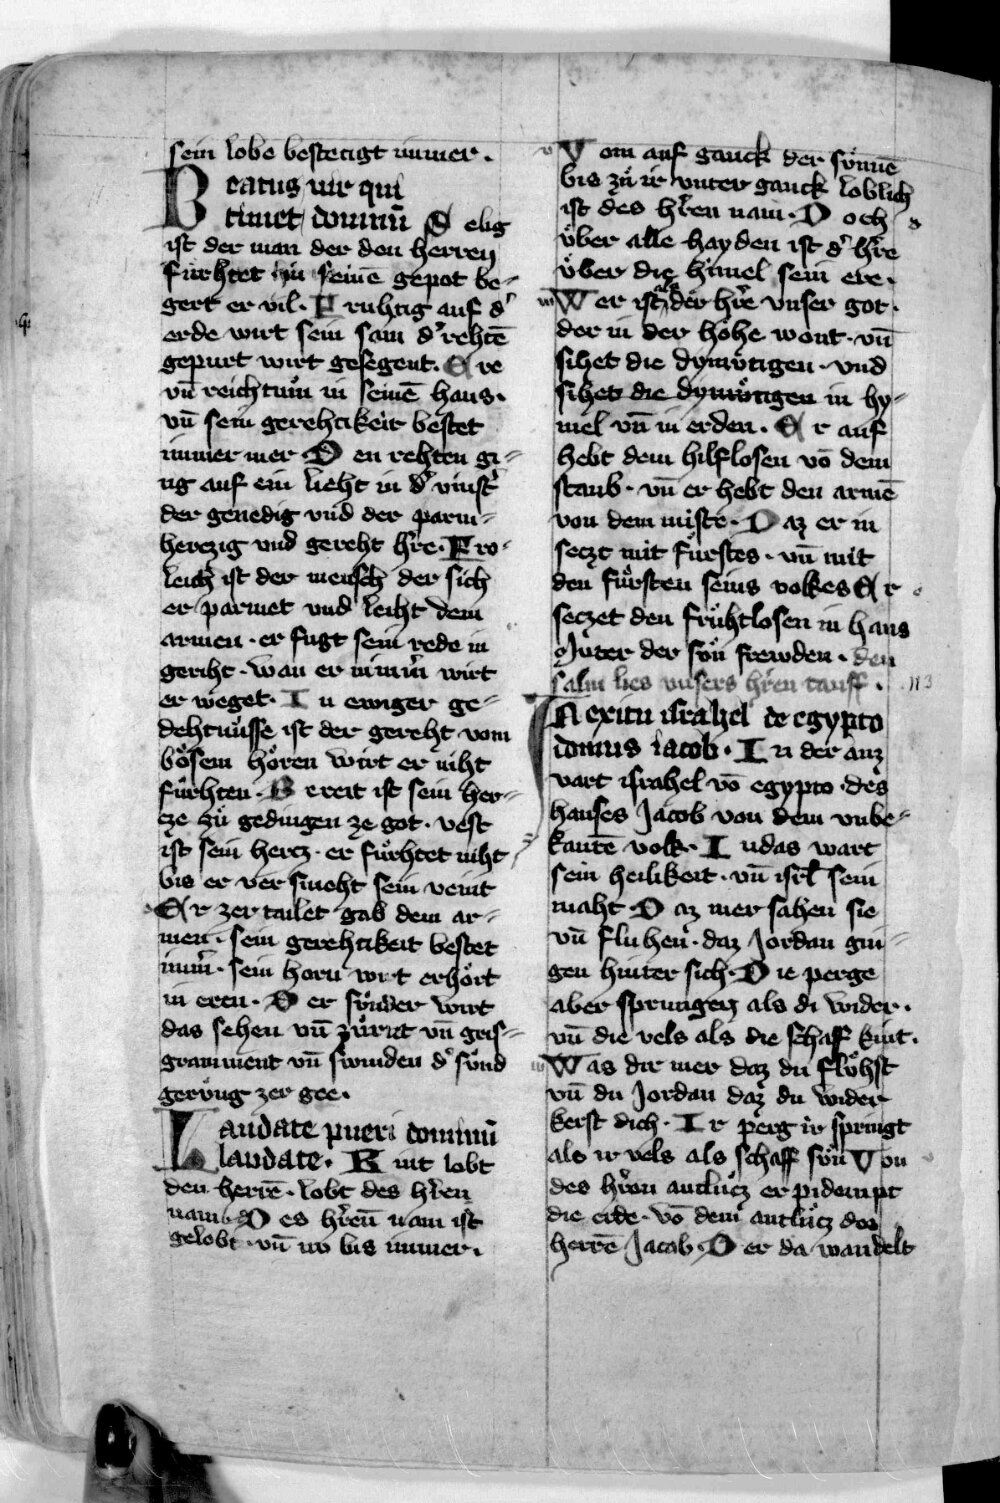 sein lobe bestetigt immer.
Beatus vir qui
timet dominū Selig
ist der man der den herren
fürhtet in seinē gepot be-
gert er vil. Fruhtig auf d'
erde wirt sein sam d' rehtē
gepurt wirt gesegent. Ere
vn̄ reichtum in seinē haus.
vn̄ sein gerehtikeit bestet
immer mer Den rehten gi-
ng auf ein lieht in d' vinst'
der genedig vnd der parm-
herczig vnd gereht hr̄e. Fro-
leich ist der mensch der sich
er parmet vnd leiht dem
armen. er fugt sein rede in
geriht. wan er nimm̄ wirt
er weget. In ewiger ge-
dehtnüsse ist der gereht vom
bösem hören wirt er niht
fürhten. Bereit ist sein her-
cze zů gedingen ze got. vest
ist sein hercz. er fürhtet niht
bis er ver smeht sein veint
Er zer tailet gab dem ar-
men. sein gerehtikeit bestet
imm̄. sein horn wirt erhört
in eren. Der sünder wirt
das sehen vn̄ zürnt vn̄ gris-
gramment vn̄ swinden d' sünd
gerüng zer gee.
Laudate pueri dominū
laudate. Kint lobt
den herrē. lobt des hr̄en
nam Des hr̄en nam ist
gelobt. vn̄ nv bis immer.
Vom auf ganck der sünnē
bis zů ir vnter ganck loblich
ist des hr̄en nam. Doch
über alle hayden ist d' hr̄e
über die himel sein ere.
Wer ist als der hr̄e vnser got.
der in der höhe wont. vn̄
sihet die dymütigen. vnd
sihet die dymütigen in hy-
mel vn̄ in erden. Er auf
hebt dem hilflosen vō dem
staub. vn̄ er hebt den armē
von dem miste. Daz er in
seczt mit fürstes. vn̄ mit
den fürsten seins volkes Er
seczet den frühtlosen in haus
Můter der sün frewden. den
salm lies vnsers hr̄en tauff. 113
In exitu israhel de egypto
domus iacob. In der auz
vart israhel vō egypto. des
hauses Jacob von dem vnbe-
kantē volk. Iudas wart
sein heilikeit. vn̄ isrl̄ sein
maht Daz mer sahen sie
vn̄ fluhen. daz Jordan gin-
gen hinter sich. Die perge
aber sprungen als di wider.
vn̄ die vels als die schaff kint.
Was dir mer daz du flöhst
vn̄ du Jordan daz du wider
kerst dich. Ir perg ir springt
als ir vels als schaff sün Von
des hr̄en antlücz er pidempt
die erde. vō dem antlücz des
herrē Jacob. Der da wandelt